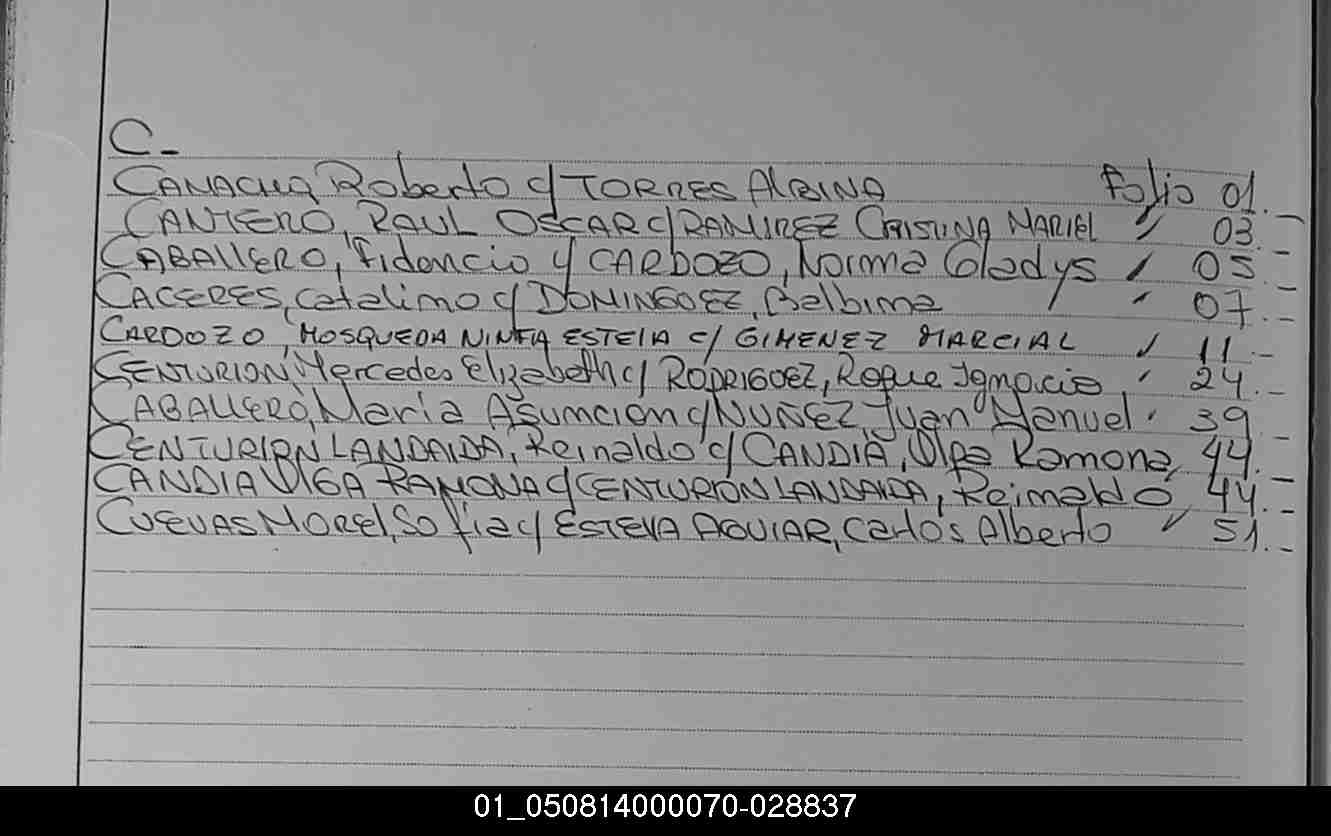 C-
CAMACHO, Roberto c/ TORRES ALBINA Folio 01.-
CANTERO, RAUL OSCAR c/ RAMIREZ CRISTINA MARIEL " 03.-
CABALLERO, Fidencio y CARDOZO, Norma Gladys " 05.-
CACERES, Catalino c/ DOMINGUEZ, Balbina " 07.-
CARDOZO, MOSQUEDA NINFA ESTELA c/ GIMENEZ MARCIAL " 11.-
CENTURION, Mercedes Elizabeth c/ RODRIGUEZ, Roque Ignacio " 24.-
CABALLERO, María Asuncion c/ NUÑEZ, Juan Manuel " 39.-
CENTURION LANDAIDA, Reinaldo c/ CANDIA, Olga Ramona, 44.-
CANDIA OLGA RAMONA c/ CENTURION LANDAIDA, Reinaldo 44.-
CUEVAS MOREL, Sofia c/ ESTEVA AGUIAR, Carlos Alberto " 51.-
01_050814000070-028837